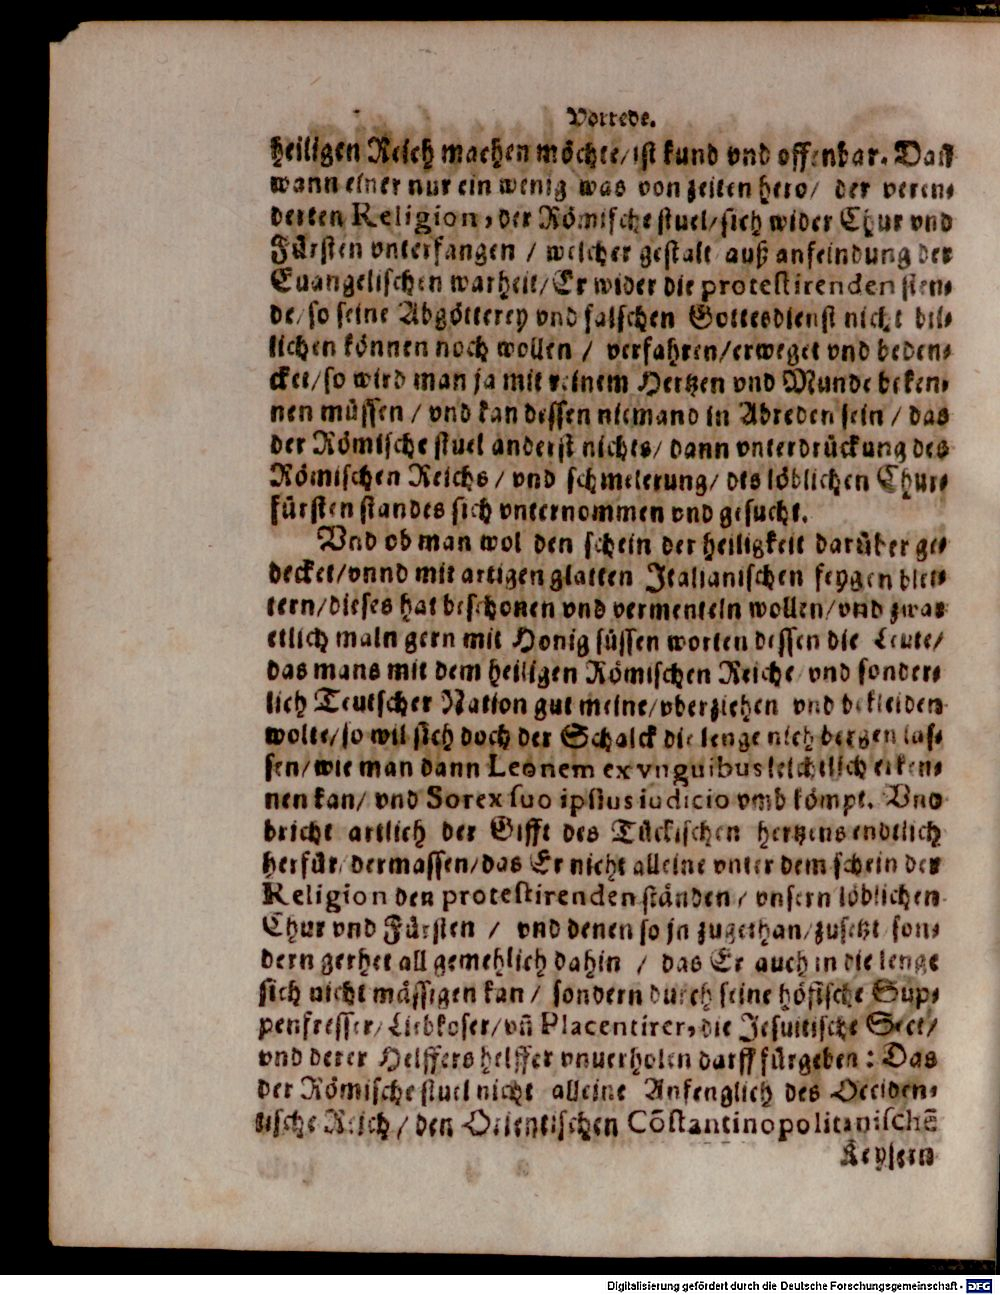 Vorrede.
heiligen Reich machen möchte/ist kund vnd offenbar. Dañ
wann einer nur ein wenig was von zeiten hero/ der veren-
derten Religion, der Römische stuel/sich wider Chur vnd
Fürsten vnterfangen / welcher gestalt auß anfeindung der
Euangelischen warheit/Er wider die protestirenden sten-
de/so seine Abgötterey vnd falschen Gottesdienst nicht bil-
lichen können noch wollen / verfahren/erweget vnd beden-
cket/so wird man ja mit reinem Hertzen vnd Munde beken-
nen müssen / vnd kan dessen niemand in Abreden sein / das
der Römische stuel anderst nichts/ dann vnterdrückung des
Römischen Reichs / vnd schmelerung/ des löblichen Chur-
fürsten standes sich vnternommen vnd gesucht.
Vnd ob man wol den schein der heiligkeit darüber ge-
decket/vnnd mit artigen glatten Italianischen feygen blet-
tern/dieses hat beschonen vnd vermenteln wollen/vnd zwar
etlich maln gern mit Honig süssen worten dessen die Leute/
das mans mit dem heiligen Römischen Reiche vnd sonder-
lich Teutscher Nation gut meine/vberziehen vnd bekleiden
wolte/so wil sich doch der Schalck die lenge nich bergen las-
sen/wie man dann Leonem ex vnguibus leichtlich erken-
nen kan/ vnd Sorex suo ipsius iudicio vmb kömpt. Vnd
bricht artlich der Gifft des Tückischen hertzens endtlich
herfür/dermassen/das Er nicht alleine vnter dem schein der
Religion den protestirenden ständen / vnsern löblichen
Chur vnd Fürsten / vnd denen so jn zugethan/zusetzt son-
dern gerhet all gemehlich dahin / das Er auch in die lenge
sich nicht mässigen kan / sondern durch seine höfische Sup-
penfresser/Liebkoser/vñ Placentirer, die Jesuitische Sect/
vnd derer Helffers helffer vnuerholen darff fürgeben : Das
der Römische stuel nicht alleine Anfenglich des Occiden-
tische Reich / den Orientischen Cōstantinopolitanischē
Keysern
Digitalisierung gefördert durch die Deutsche Forschungsgemeinschaft - DFG